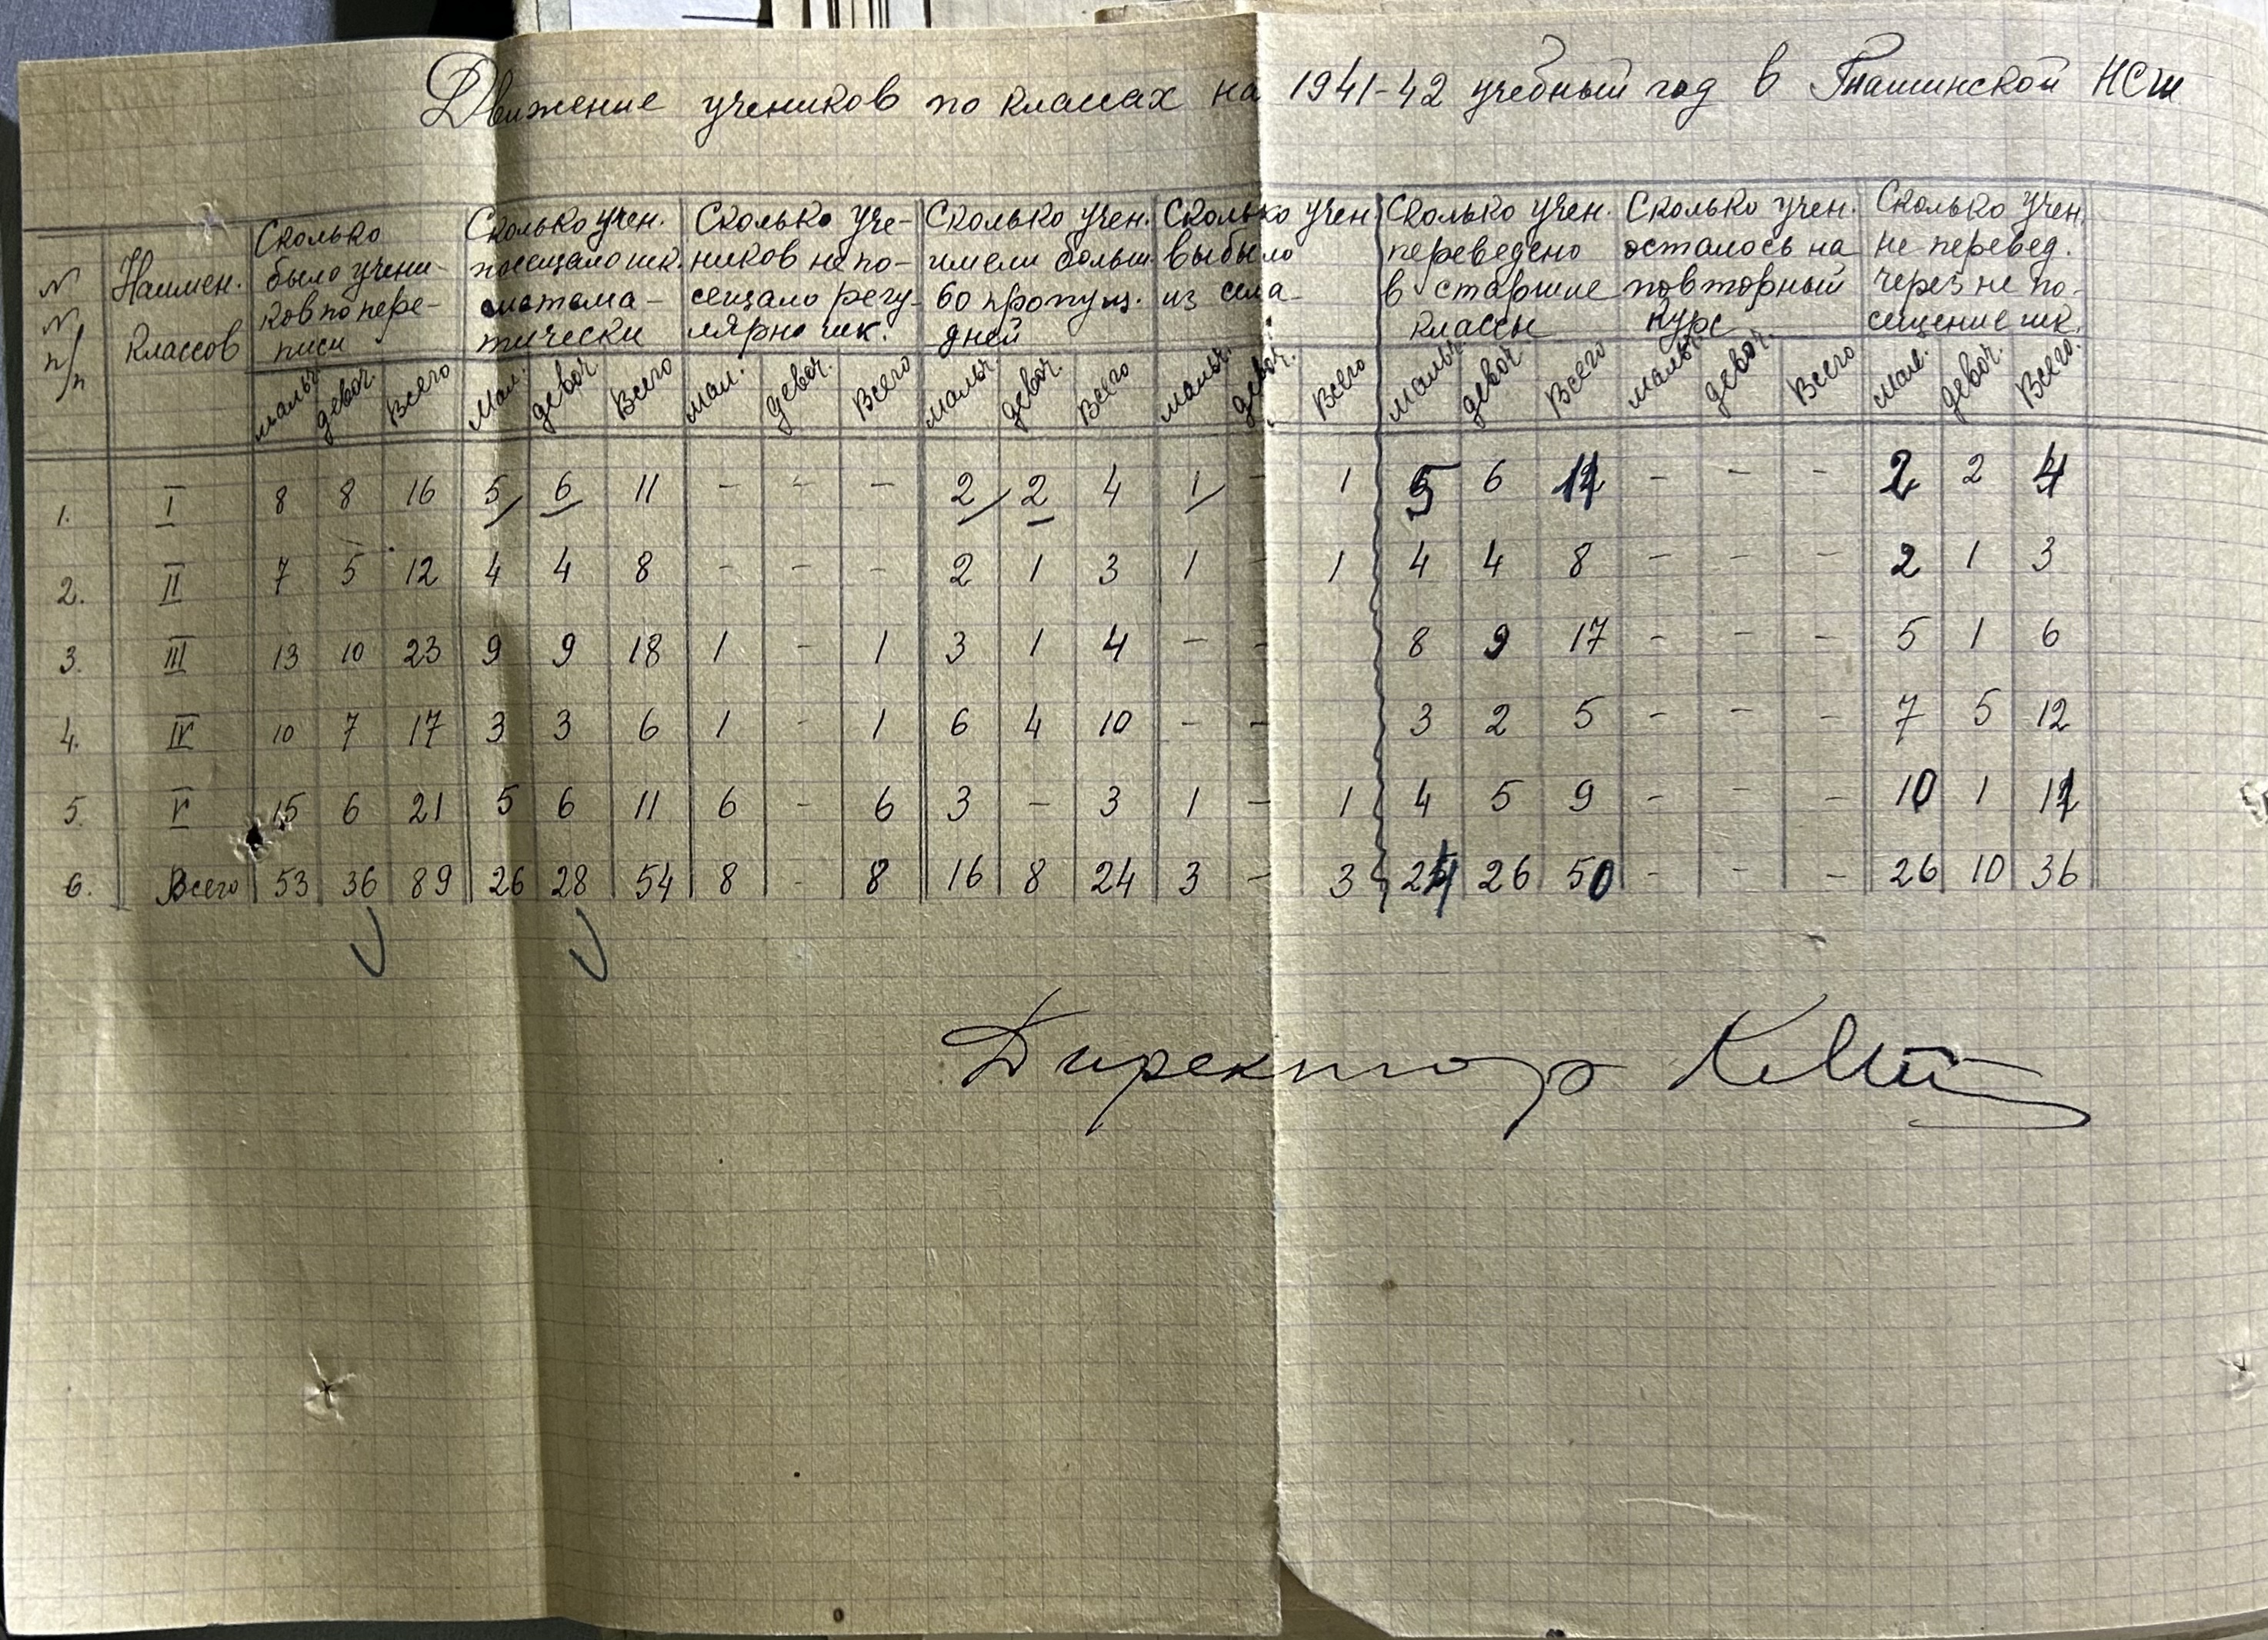 Движение учеников по классах на 1941-42 учебный год в Гнашинской НСШ
N N п/п | Наимен. классов | Сколько было учени- ков по пере- писи | Сколько учен. посещало шк. система- тически | Сколько уче- ников не по- сещало регу- лярно шк. | Сколько учен. имели больш. 60 пропущ. дней | Сколько учен. выбыло из села | Сколько учен. переведено в старшие классы | Сколько учен. осталось на повторный курс | Сколько учен. не перевед. через не по- сещение шк.
мальч. девоч. Всего | Мал. девоч. Всего | мал. девоч. Всего | мальч. девоч. Всего | мальч. девоч. Всего | мальч. девоч. Всего | мальч. девоч. Всего | мал. девоч. Всего.
1. I 8 8 16 5 6 11 - - - 2 2 4 1 - 1 5 6 11 - - - 2 2 4
2. II 7 5 12 4 4 8 - - - 2 1 3 1 - 1 4 4 8 - - - 2 1 3
3. III 13 10 23 9 9 18 1 - 1 3 1 4 - - 8 9 17 - - - 5 1 6
4. IV 10 7 17 3 3 6 1 - 1 6 4 10 - - 3 2 5 - - - 7 5 12
5. V 15 6 21 5 6 11 6 - 6 3 - 3 1 - 1 4 5 9 - - - 10 1 11
6. Всего 53 36 89 26 28 54 8 - 8 16 8 24 3 - 3 24 26 50 - - - 26 10 36
Директор